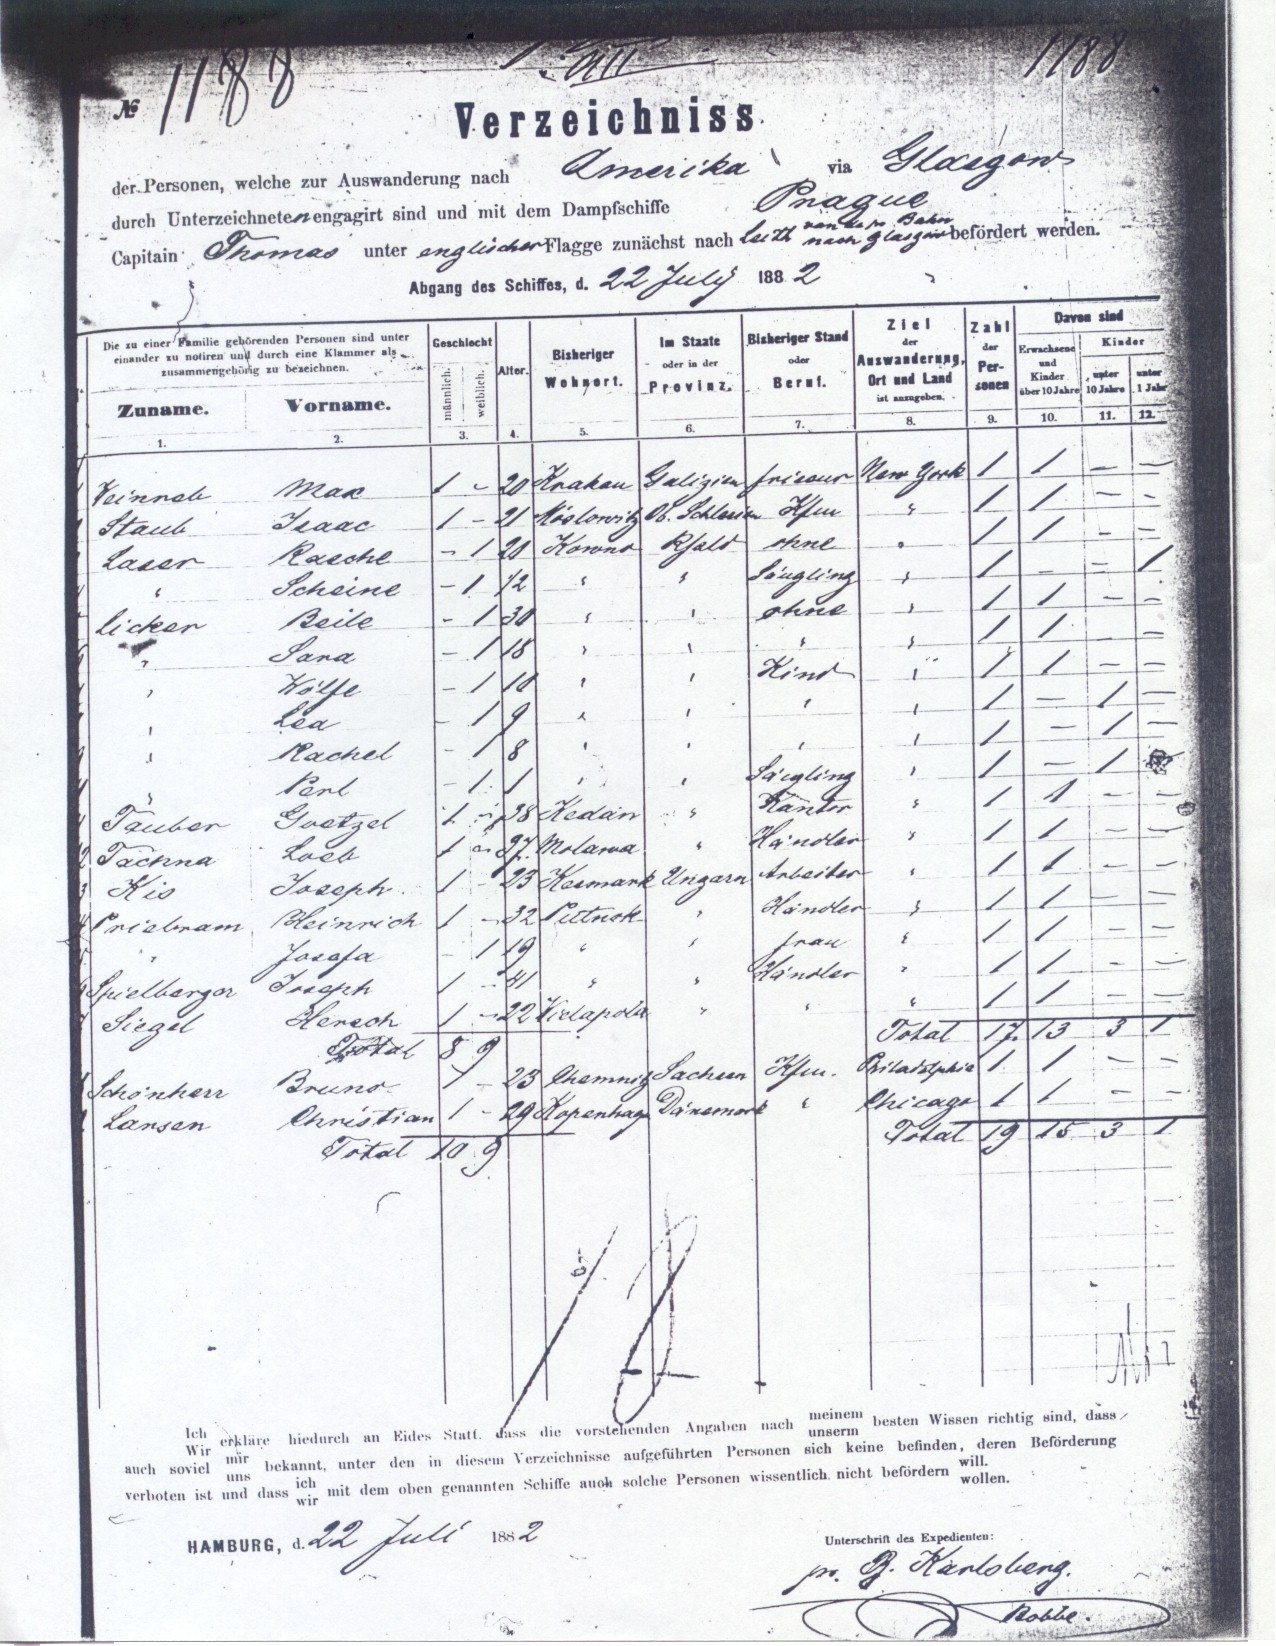 № 1188 1188
Verzeichniss
der Personen, welche zur Auswanderung nach Amerika via Glasgow
durch Unterzeichneten engagirt sind und mit dem Dampfschiffe Prague
Capitain Thomas unter englischer Flagge zunächst nach Leith von da pr. Bahn nach Glasgow befördert werden.
Abgang des Schiffes, d. 22 July 1882
Die zu einer Familie gehörenden Personen sind unter einander zu notiren und durch eine Klammer als zusammengehörig zu bezeichnen. Geschlecht Alter. Bisheriger Wohnort. Im Staate oder in der Provinz. Bisheriger Stand oder Beruf. Ziel der Auswanderung, Ort und Land ist anzugeben. Zahl der Personen Davon sind
Zuname. Vorname. männlich. weiblich. Erwachsene und Kinder über 10 Jahre Kinder unter 10 Jahre unter 1 Jahr
1. 2. 3. 4. 5. 6. 7. 8. 9. 10. 11. 12.
Weinreb Max 1 - 20 Krakau Galizien friseur New York 1 1 — —
Staub Isaac 1 - 21 Möslowitz Ob. Schlesien Kfm " 1 1 — —
Laser Rasche - 1 20 Kowno Rssld ohne " 1 1 — —
" Scheine - 1 1/2 " " Säugling " 1 — — 1
Licker Beile - 1 30 " " ohne " 1 1 — —
" Sara - 1 18 " " " " 1 1 — —
" Wolfe - 1 10 " " Kind " 1 1 — —
" Lea - 1 9 " " " " 1 — 1 —
" Rachel - 1 8 " " " " 1 — 1 —
" Perl - 1 1 " " Säugling " 1 — 1
Tauber Goetzel 1 - 38 Kedan " Kantor " 1 1
Tachna Loeb 1 - 27 " Händler " 1 1 — —
Kis Joseph 1 - 23 Kesmark Ungarn Arbeiter " 1 1 — —
Priebram Heinrich 1 - 32 Puttnok " Händler " 1 1 — —
" Josefa - 1 19 " " frau " 1 1 — —
Spielberger Joseph 1 - 41 " " Händler " 1 1 — —
Siegel Hersch 1 - 22 " " " 1 1 — —
Total 8 9 Total 17 13 3 1
Schönherr Bruno 1 - 23 Chemnitz Sachsen Kfm. Philadelphia 1 1 — —
Larsen Christian 1 - 29 Kopenhagn Dänemark " Chicago 1 1 — —
Total 10 9 Total 19 15 3 1
Ich Wir erkläre hiedurch an Eides Statt, dass die vorstehenden Angaben nach meinem unserm besten Wissen richtig sind, dass
auch soviel mir uns bekannt, unter den in diesem Verzeichnisse aufgeführten Personen sich keine befinden, deren Beförderung
verboten ist und dass ich wir mit dem oben genannten Schiffe auch solche Personen wissentlich nicht befördern will. wollen.
HAMBURG, d. 22 Juli 1882
Unterschrift des Expedienten:
pr. B. Karlsberg.
Bobbe.